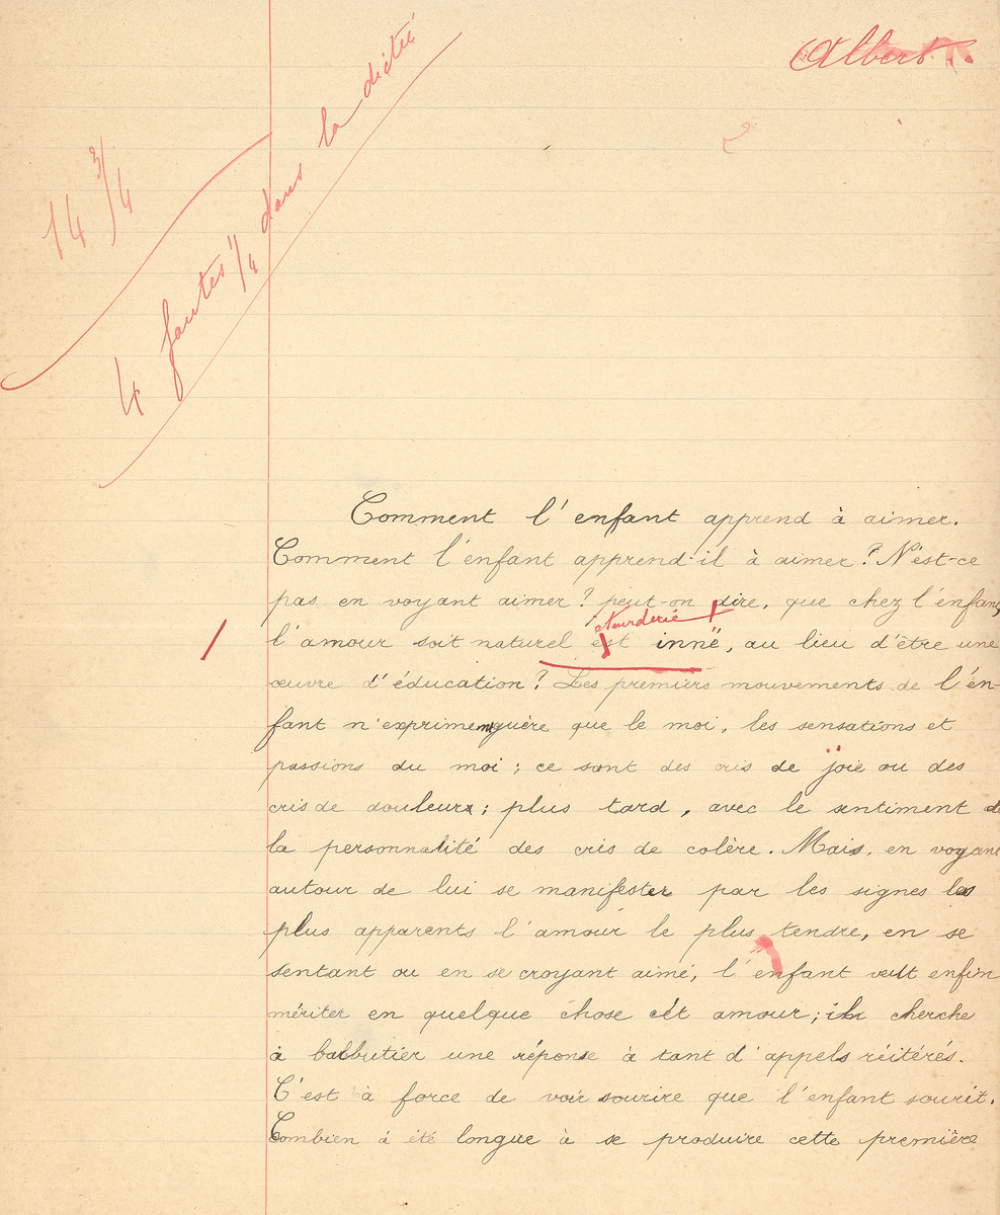 Albert.
14 3/4
4 fautes 1/4 dans la dictée
Comment l'enfant apprend à aimer.
Comment l'enfant apprend-il à aimer ? N'est-ce
pas en voyant aimer ? peut-on dire, que chez l'enfant,
étourderie
l'amour soit naturel est inné, au lieu d'être une
œuvre d'éducation ? Les premiers mouvements de l'en-
fant n'expriment guère que le moi, les sensations et
passions du moi ; ce sont des cris de joie ou des
cris de douleurs ; plus tard, avec le sentiment de
la personnalité des cris de colère. Mais, en voyant
autour de lui se manifester par les signes les
plus apparents l'amour le plus tendre, en se
sentant ou en se croyant aimé, l'enfant veut enfin
mériter en quelque chose cét amour ; il cherche
à balbutier une réponse à tant d'appels réitérés.
C'est à force de voir sourire que l'enfant sourit.
Combien à été longue à se produire cette première